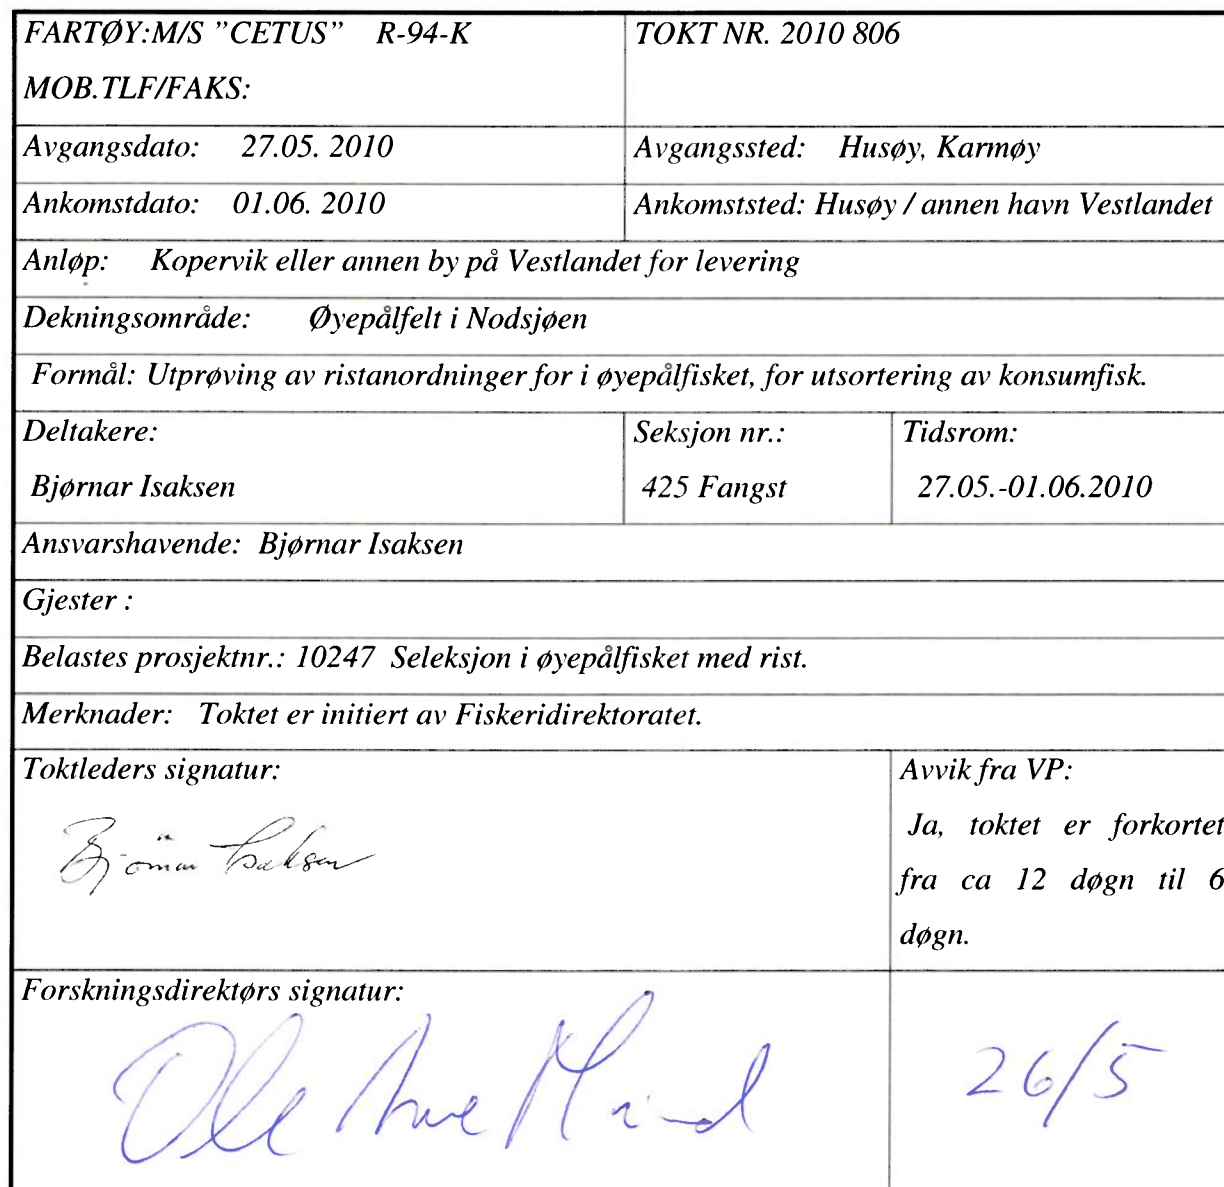 FARTØY:M/S "CETUS" R-94-K
TOKT NR. 2010 806
MOB.TLF/FAKS:
Avgangsdato: 27.05. 2010
Avgangssted: Husøy, Karmøy
Ankomstdato: 01.06. 2010
Ankomststed: Husøy / annen havn Vestlandet
Anløp: Kopervik eller annen by på Vestlandet for levering
Dekningsområde: Øyepålfelt i Nodsjøen
Formål: Utprøving av ristanordninger for i øyepålfisket, for utsortering av konsumfisk.
Deltakere:
Bjørnar Isaksen
Seksjon nr.:
425 Fangst
Tidsrom:
27.05.-01.06.2010
Ansvarshavende: Bjørnar Isaksen
Gjester :
Belastes prosjektnr.: 10247 Seleksjon i øyepålfisket med rist.
Merknader: Toktet er initiert av Fiskeridirektoratet.
Toktleders signatur:
Bjørnar Isaksen
Avvik fra VP:
Ja, toktet er forkortet
fra ca 12 døgn til 6
døgn.
Forskningsdirektørs signatur:
Ole
26/5